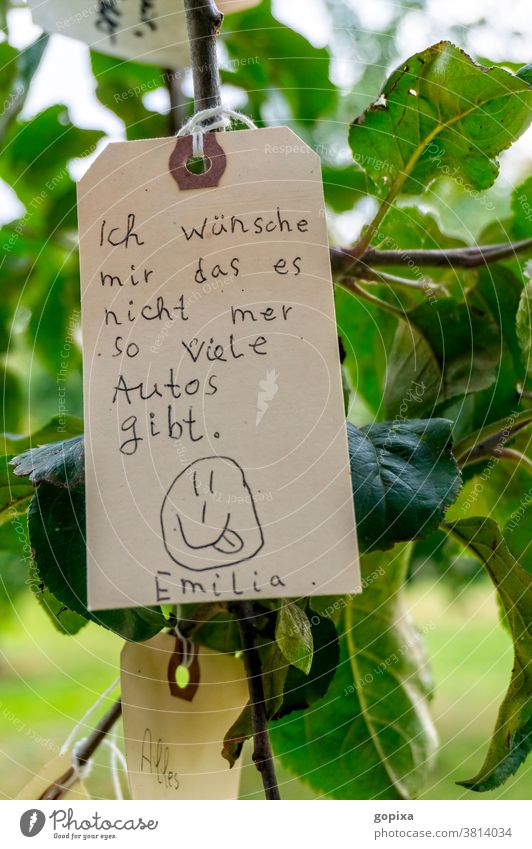 Ich wünsche
mir das es
nicht mer
so viele
Autos
gibt.
Emilia.
Alles
PHOTOCASE
Good for your eyes.
gopixa
3814034